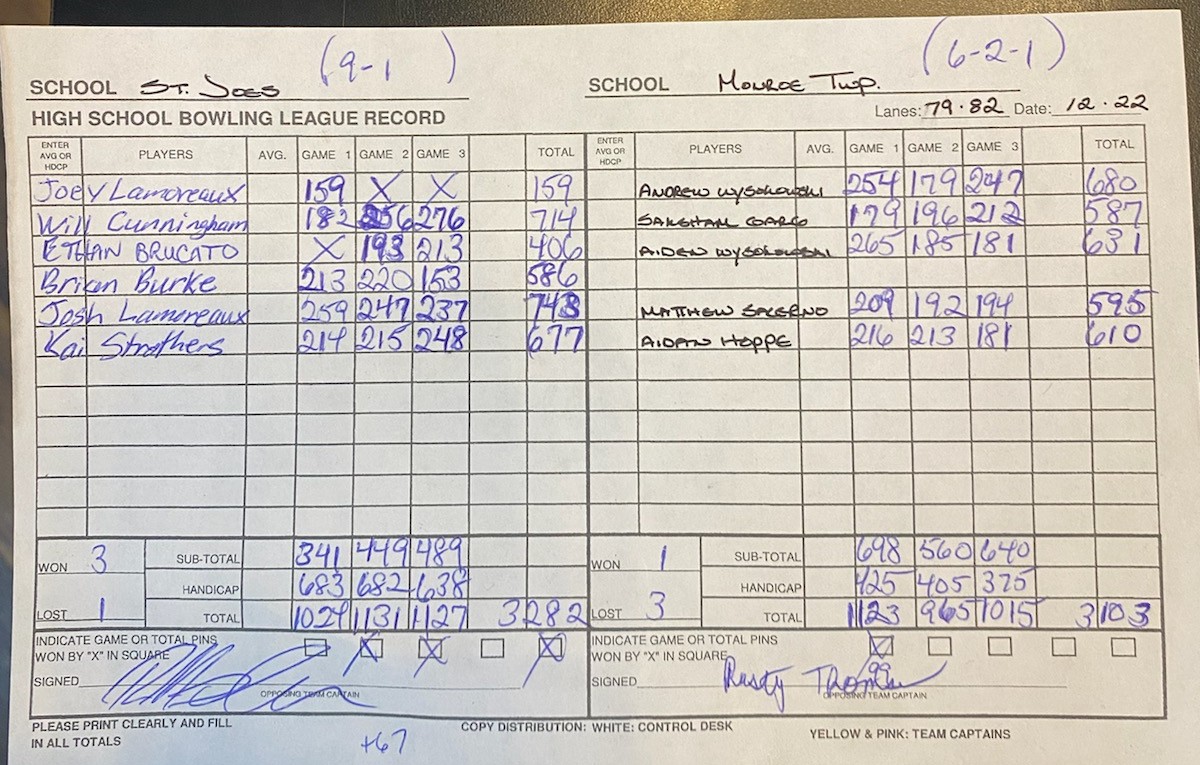 (9-1) (6-2-1)
SCHOOL ST. JOES SCHOOL MONROE TWP.
HIGH SCHOOL BOWLING LEAGUE RECORD Lanes: 79-82 Date: 12-22
ENTER AVG OR HDCP PLAYERS AVG. GAME 1 GAME 2 GAME 3 TOTAL ENTER AVG OR HDCP PLAYERS AVG. GAME 1 GAME 2 GAME 3 TOTAL
Joey Lamoreaux 159 X X 159 ANDREW WYSOKOWSKI 254 179 247 680
Will Cunningham 182 256 276 714 179 196 212 587
ETHAN BRUCATO X 193 213 406 AIDEN WYSOKOWSKI 265 185 181 631
Brian Burke 213 220 153 586
Josh Lamoreaux 259 247 237 743 MATTHEW SALERNO 209 192 194 595
Kai Strothers 214 215 248 677 AIDAN HOPPE 216 213 181 610
WON 3 SUB-TOTAL 341 449 489 WON 1 SUB-TOTAL 698 560 640
HANDICAP 683 682 638 HANDICAP 425 405 375
LOST 1 TOTAL 1027 1131 1127 3282 LOST 3 TOTAL 1123 965 1015 3103
INDICATE GAME OR TOTAL PINS INDICATE GAME OR TOTAL PINS
WON BY "X" IN SQUARE X X X WON BY "X" IN SQUARE X
SIGNED SIGNED Rusty Thomsen
OPPOSING TEAM CAPTAIN OPPOSING TEAM CAPTAIN
PLEASE PRINT CLEARLY AND FILL COPY DISTRIBUTION: WHITE: CONTROL DESK YELLOW & PINK: TEAM CAPTAINS
IN ALL TOTALS +67